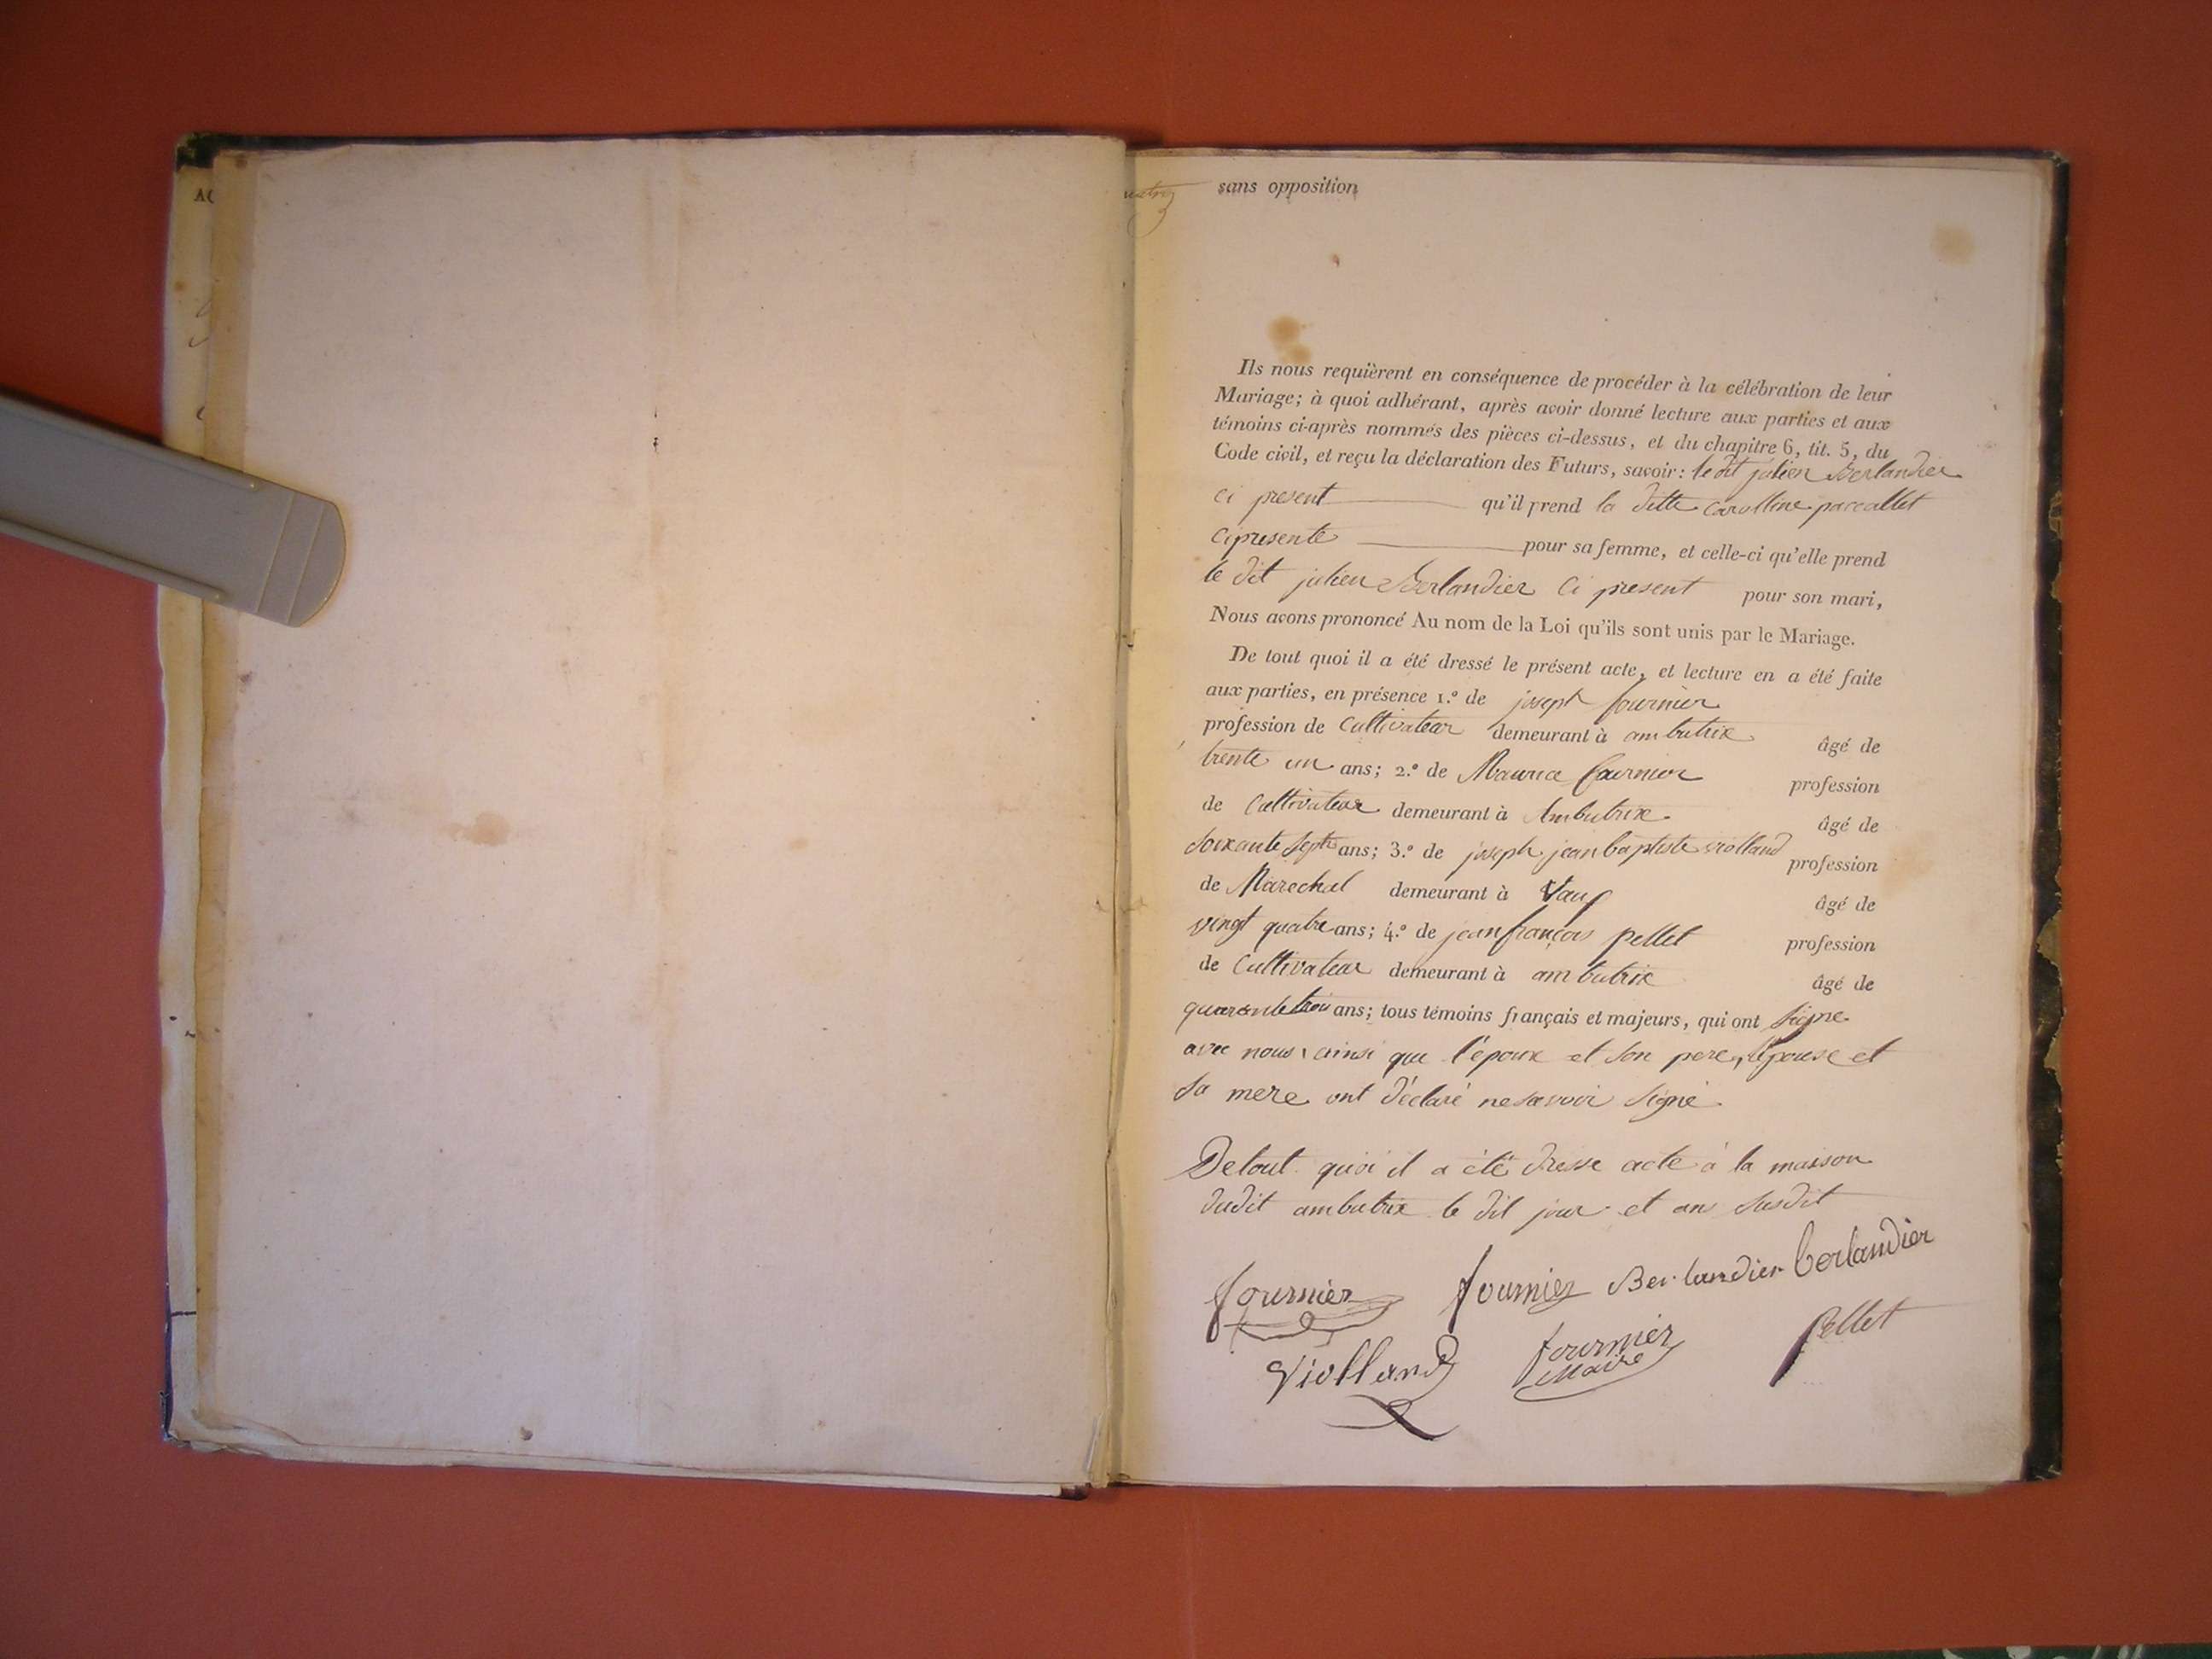 AC
sans opposition
Ils nous requièrent en conséquence de procéder à la célébration de leur
Mariage; à quoi adhérant, après avoir donné lecture aux parties et aux
témoins ci-après nommés des pièces ci-dessus, et du chapitre 6, tit. 5, du
Code civil, et reçu la déclaration des Futurs, savoir: le dit julien Berlandier
ci present qu'il prend la ditte Carolline paccallet
ci presente pour sa femme, et celle-ci qu'elle prend
le dit julien Berlandier Ci present pour son mari,
Nous avons prononcé Au nom de la Loi qu'ils sont unis par le Mariage.
De tout quoi il a été dressé le présent acte, et lecture en a été faite
aux parties, en présence 1.º de joseph fournier
profession de Cultivateur demeurant à ambutrix âgé de
trente un ans; 2.º de Maurice fournier profession
de Cultivateur demeurant à Ambutrix âgé de
soixante Sept ans; 3.º de joseph jean baptiste violland profession
de Marechal demeurant à Vaux âgé de
vingt quatre ans; 4.º de jean françois pellet profession
de Cultivateur demeurant à ambutrix âgé de
quarante trois ans; tous témoins français et majeurs, qui ont Signe
avec nous ainsi que l'époux et Son pere, l'épouse et
Sa mere ont déclaré ne savoir Signé
De tout quoi il a été dresse acte à la maison
dudit ambutrix le dit jour et an Susdit
fournier fournier Berlandier berlandier
Violland fournier Maire Pellet